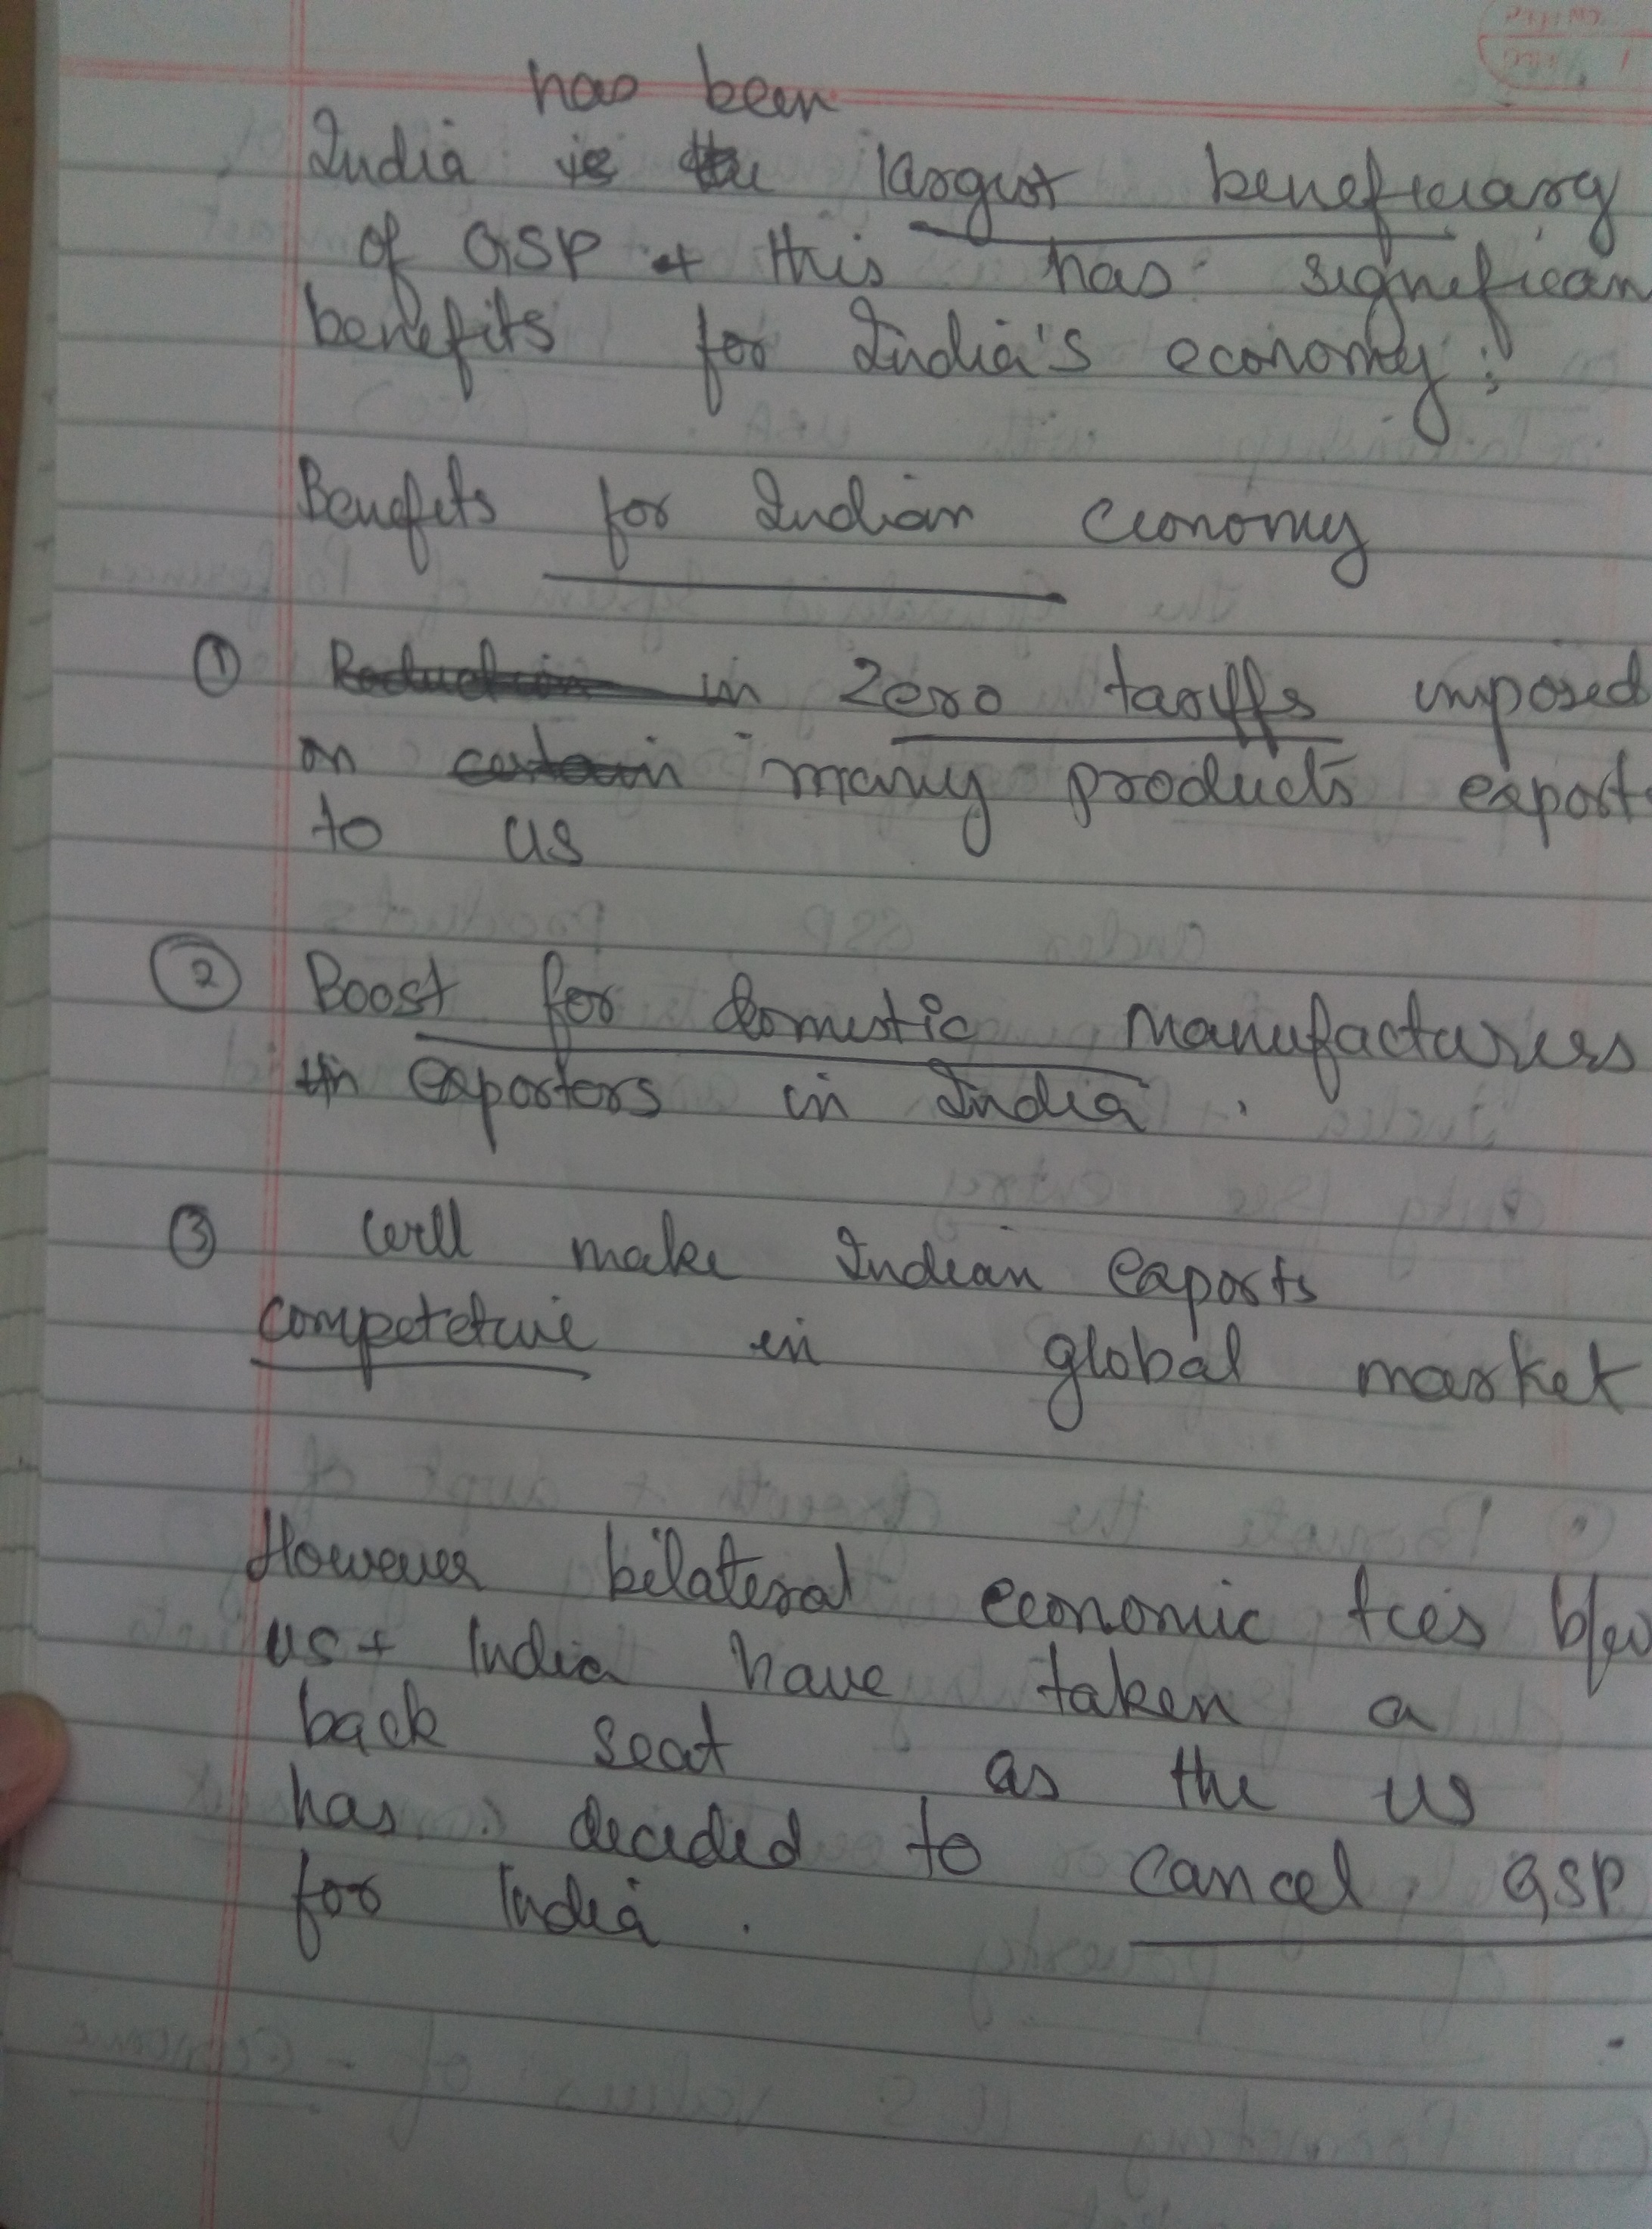 has been
India is the largest beneficiary
of GSP + this has significan
benefits for India's economy:
Benefits for Indian economy
① Reduction in Zero tariffs imposed
on certain many products export
to US
② Boost for domestic manufacturers
exporters in India.
③ Will make Indian exports
competetive in global market
However bilateral economic ties b/w
US + India have taken a
back seat as the US
has decided to cancel GSP
for India.